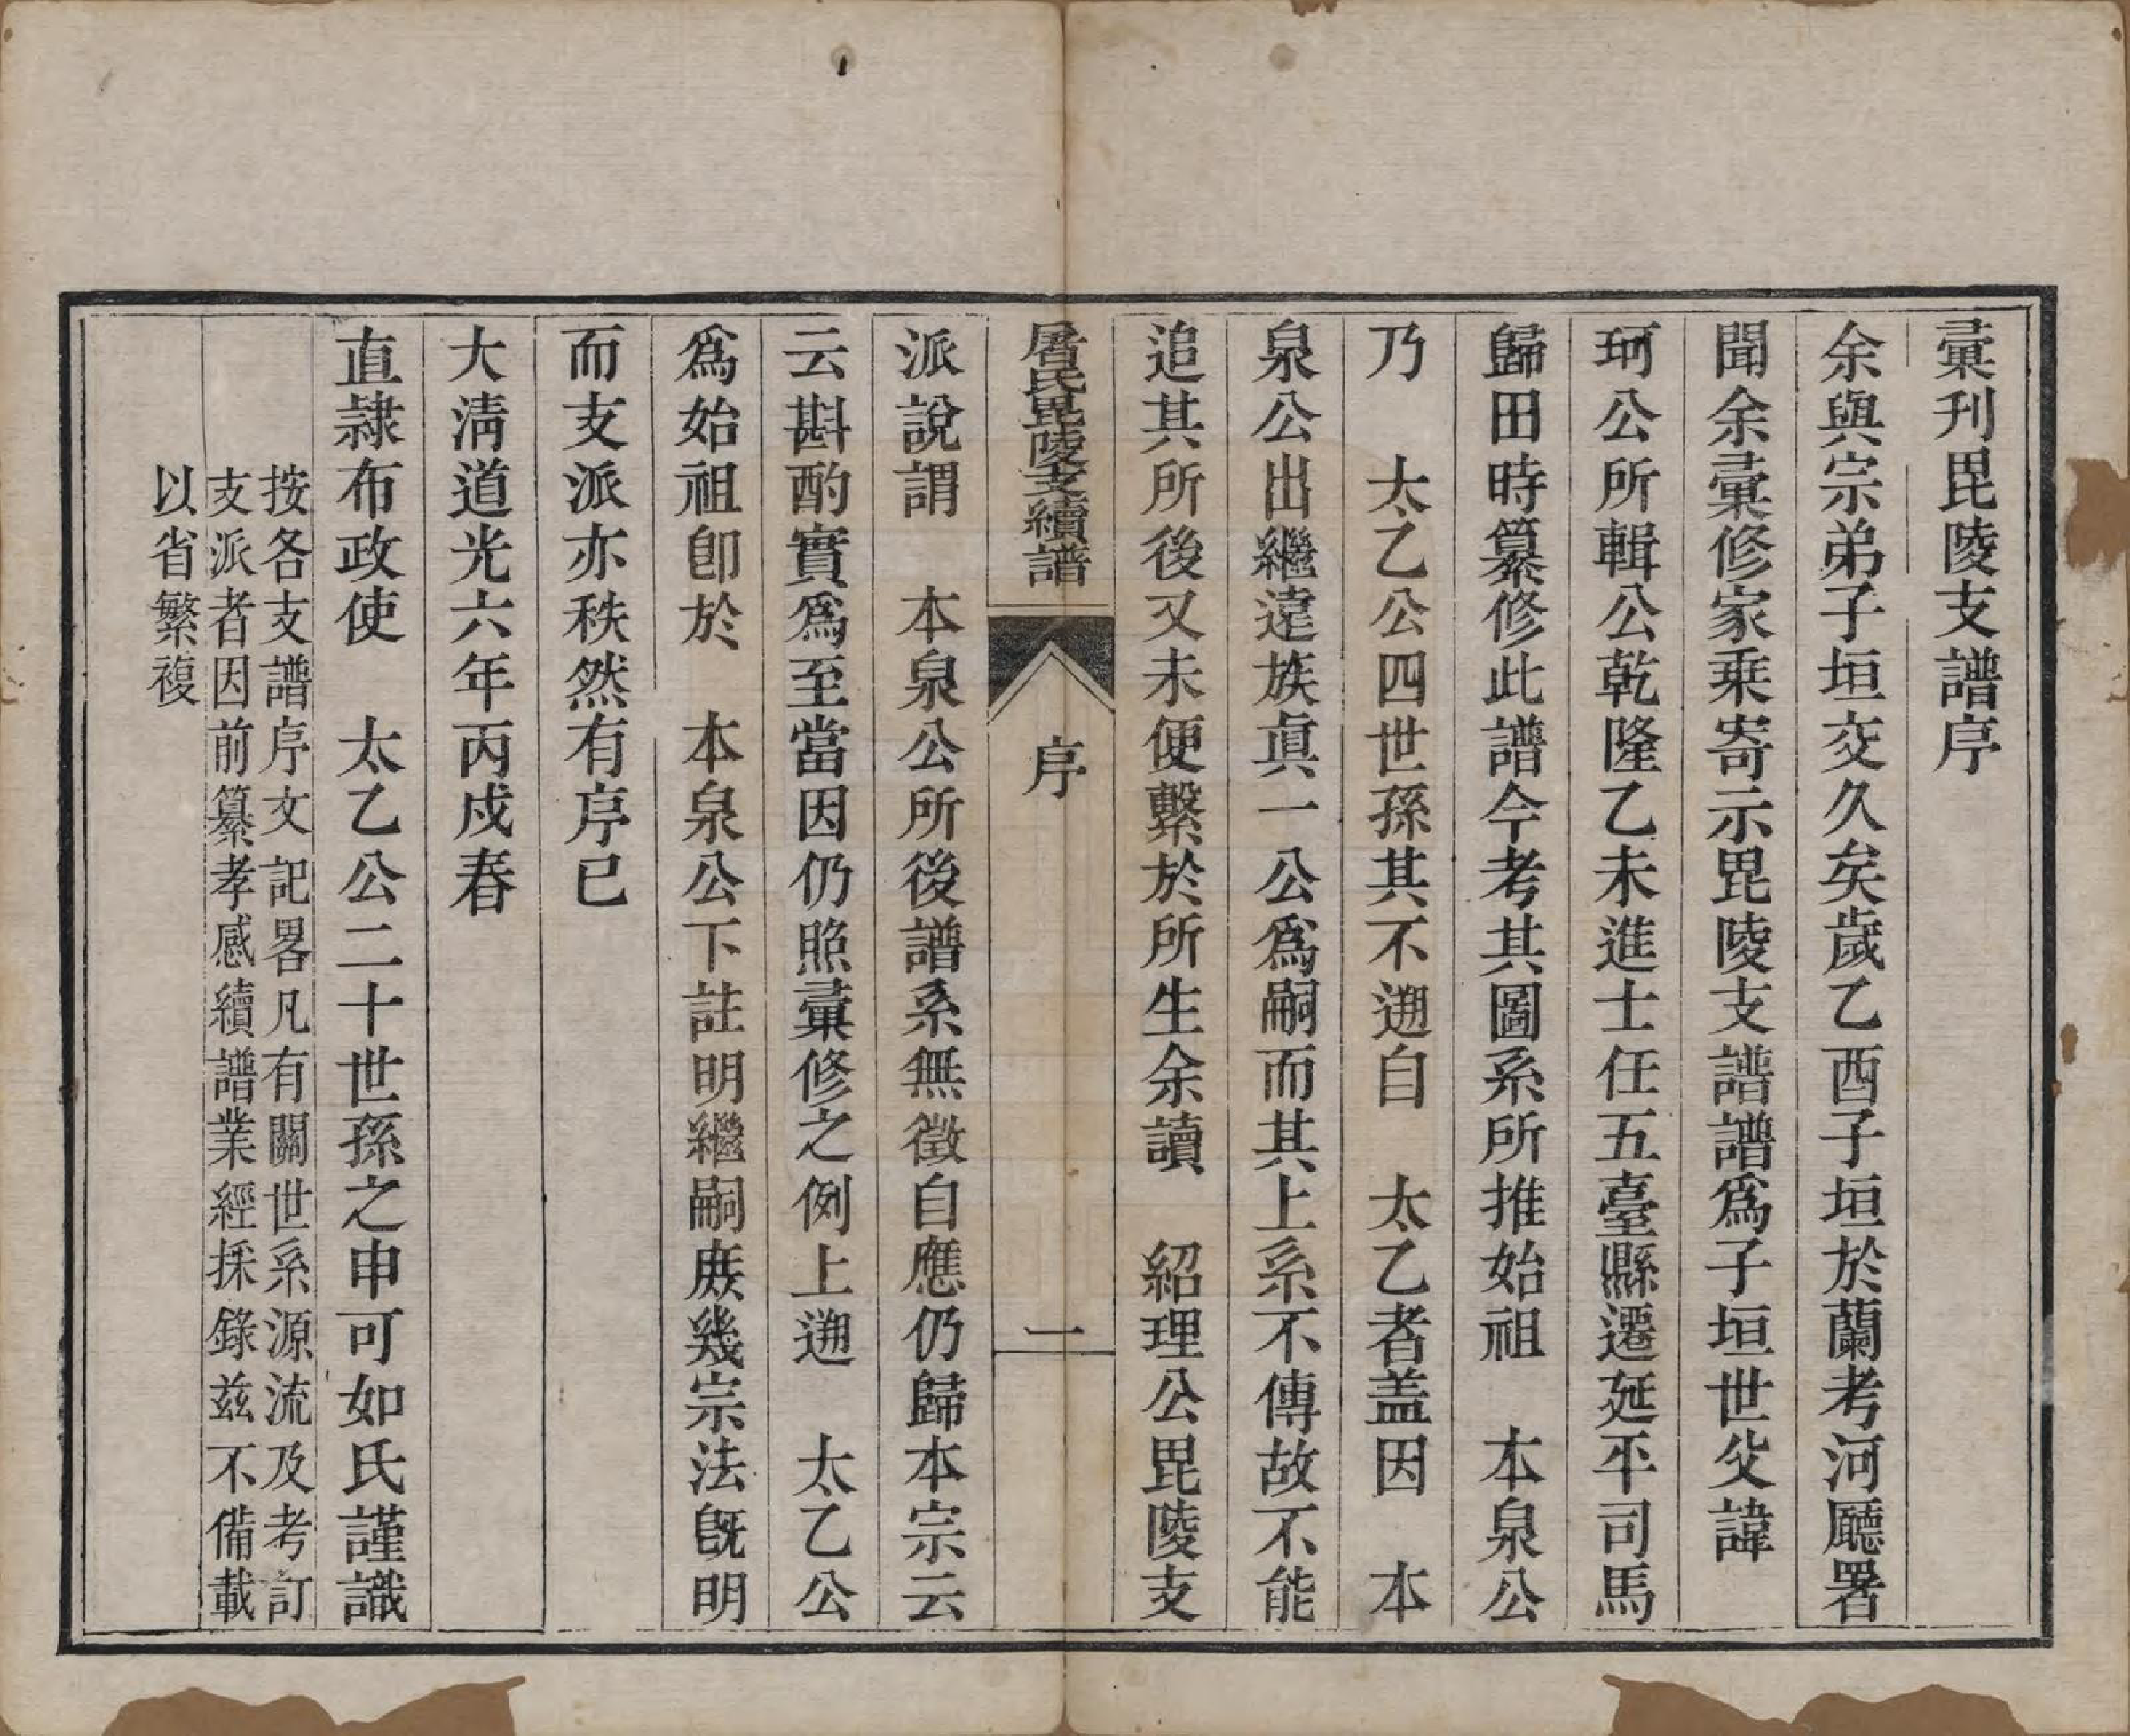 彚刋毘陵支譜序
余與宗弟子垣交久矣歲乙酉子垣於蘭考河廳署
聞余彚修家乗寄示毘陵支譜譜爲子垣世父諱
珂公所輯公乾隆乙未進士任五臺縣遷延平司馬
歸田時纂修此譜今考其圖系所推始祖　本泉公
乃　太乙公四世孫其不遡自　太乙者盖因　本
泉公出繼遠族眞一公爲嗣而其上系不傳故不能
追其所後又未便繫於所生余讀　紹理公毘陵支
屠氏毘陵支續譜　序　一
派說謂　本泉公所後譜系無徵自應仍歸本宗云
云斟酌實爲至當因仍照彚修之例上遡　太乙公
爲始祖卽於　本泉公下註明繼嗣庻幾宗法旣明
而支派亦秩然有序已
大淸道光六年丙戍春
直隷布政使　太乙公二十世孫之申可如氏謹識
按各支譜序文記畧凡有關世系源流及考訂
支派者因前纂孝感續譜業經採錄兹不備載
以省繁複